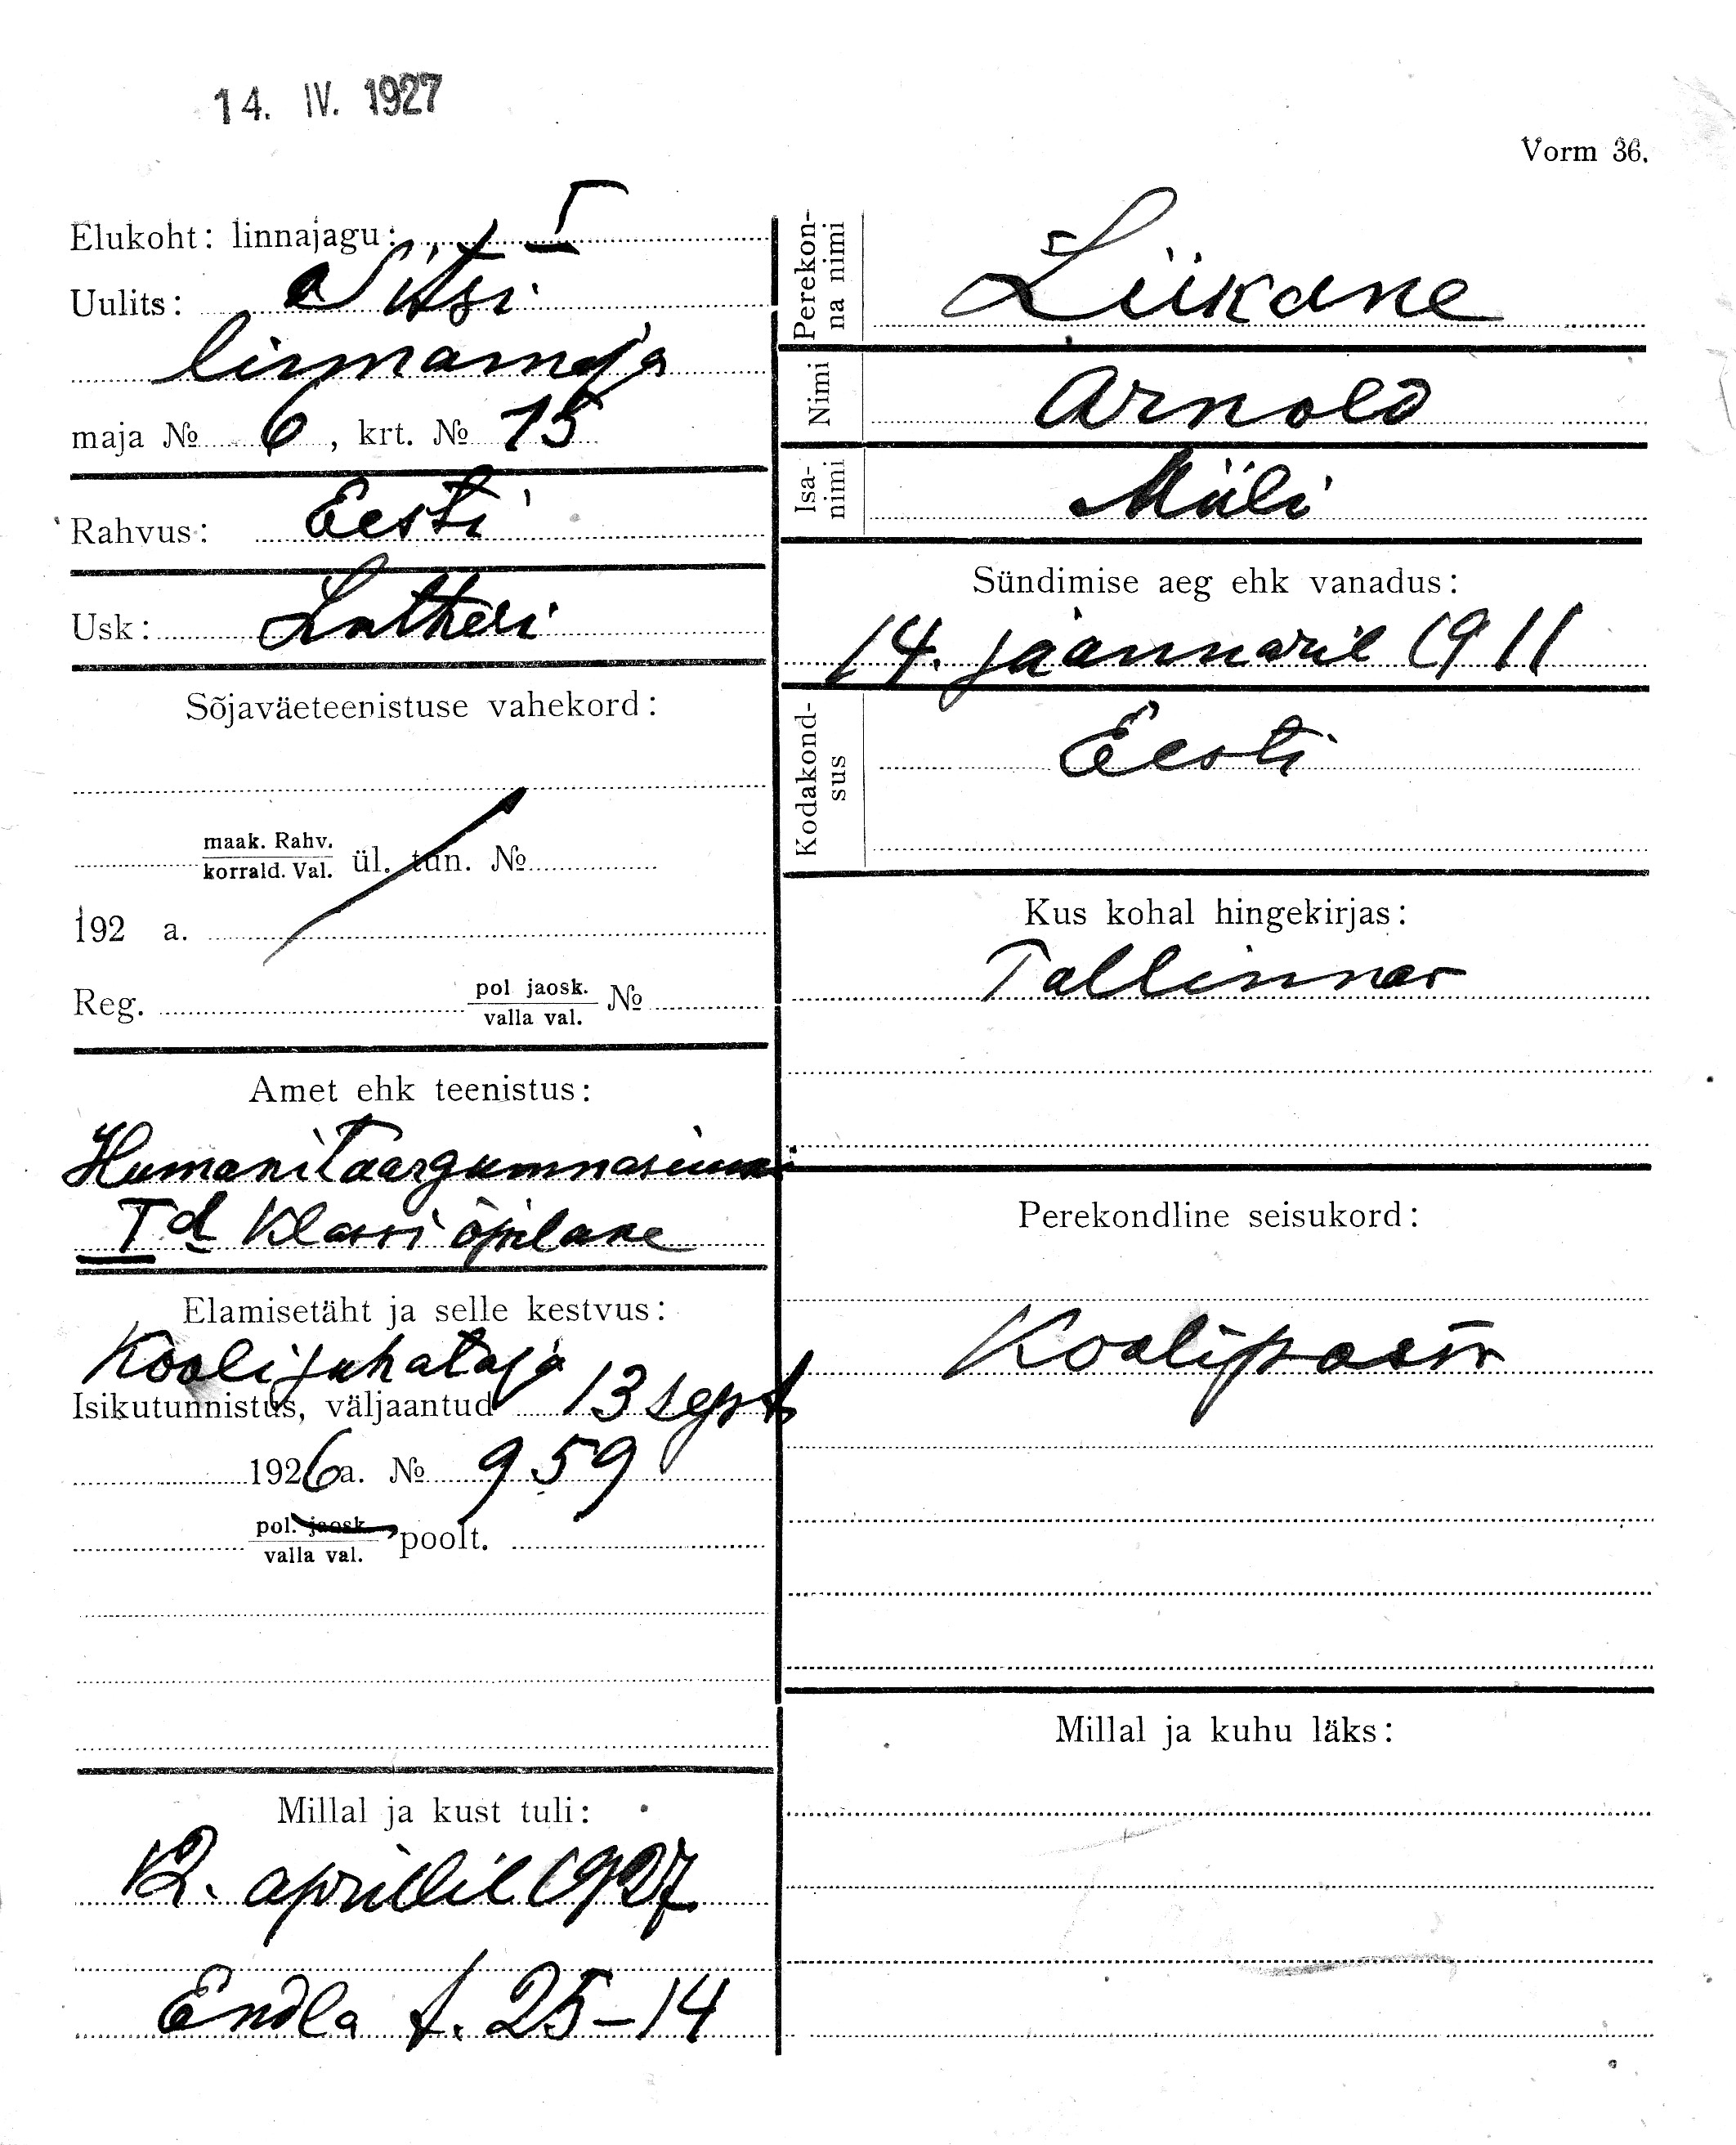 14. IV. 1927
Vorm 36.
Elukoht: linnajagu: I
Uulits: Sitsi
linnamaja
maja № 6, krt. № 15
Rahvus: Eesti
Usk: Lutheri
Sõjaväeteenistuse vahekord:
maak. Rahv.
korrald. Val. ül. tun. №
192 a.
Reg. pol jaosk.
valla val. №
Amet ehk teenistus:
Humanitaargümnasiumi
I d klassi õpilane
Elamisetäht ja selle kestvus:
Koolijuhataja
Isikutunnistus, väljaantud 13 sept
1926 a. № 959
pol. jaosk.
valla val. poolt.
Millal ja kust tuli:
12. aprillil 1927
Endla t. 25-14
Perekon-
na nimi
Liikane
Nimi
Arnold
Isa-
nimi
Miili
Sündimise aeg ehk vanadus:
14. jaanuaril 1911
Kodakond-
sus
Eesti
Kus kohal hingekirjas:
Tallinnas
Perekondline seisukord:
Koolipoiss
Millal ja kuhu läks: